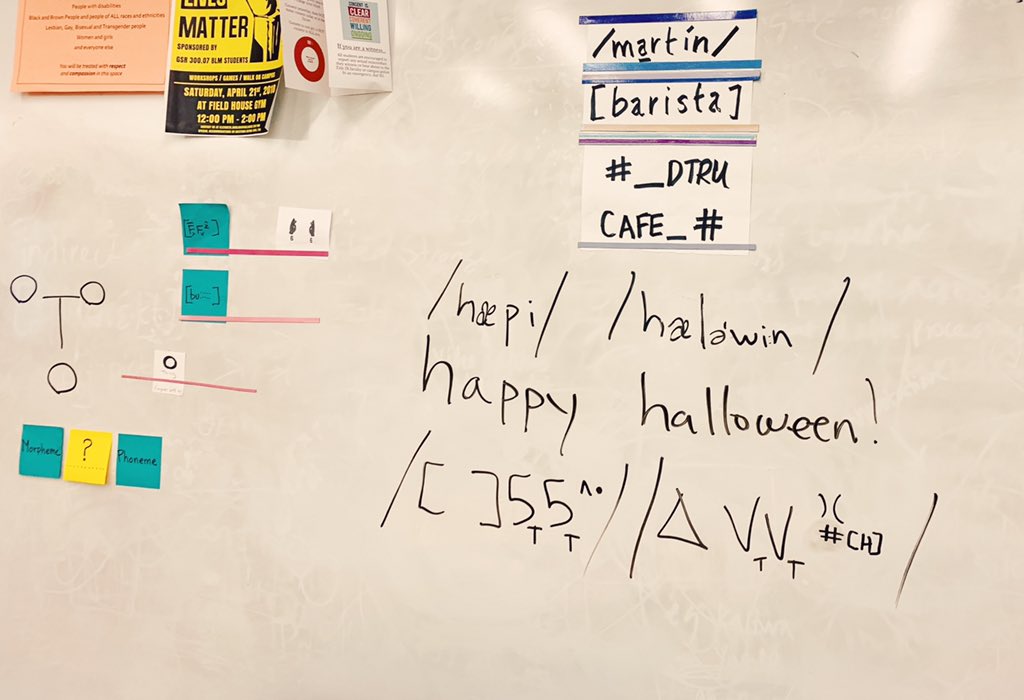 People with disabilities
Black and Brown People and people of ALL races and ethnicities
Lesbian, Gay, Bisexual and Transgender people
Women and girls
and everyone else
You will be treated with respect
and compassion in this space
LIVES
MATTER
SPONSORED BY
GSR 300.07 BLM STUDENTS
WORKSHOPS / GAMES / WALK ON CAMPUS
SATURDAY, APRIL 21st, 2018
AT FIELD HOUSE GYM
12:00 PM - 2:00 PM
CONSENT IS
CLEAR
COHERENT
WILLING
ONGOING
If you are a witness...
/martín/
[barista]
#_DTRU
CAFE_#
Morpheme
?
Phoneme
/hæpi/ /hæləwin/
happy halloween!
/[ ]5T5T^•/ /Δ VTVT )( #[H] /